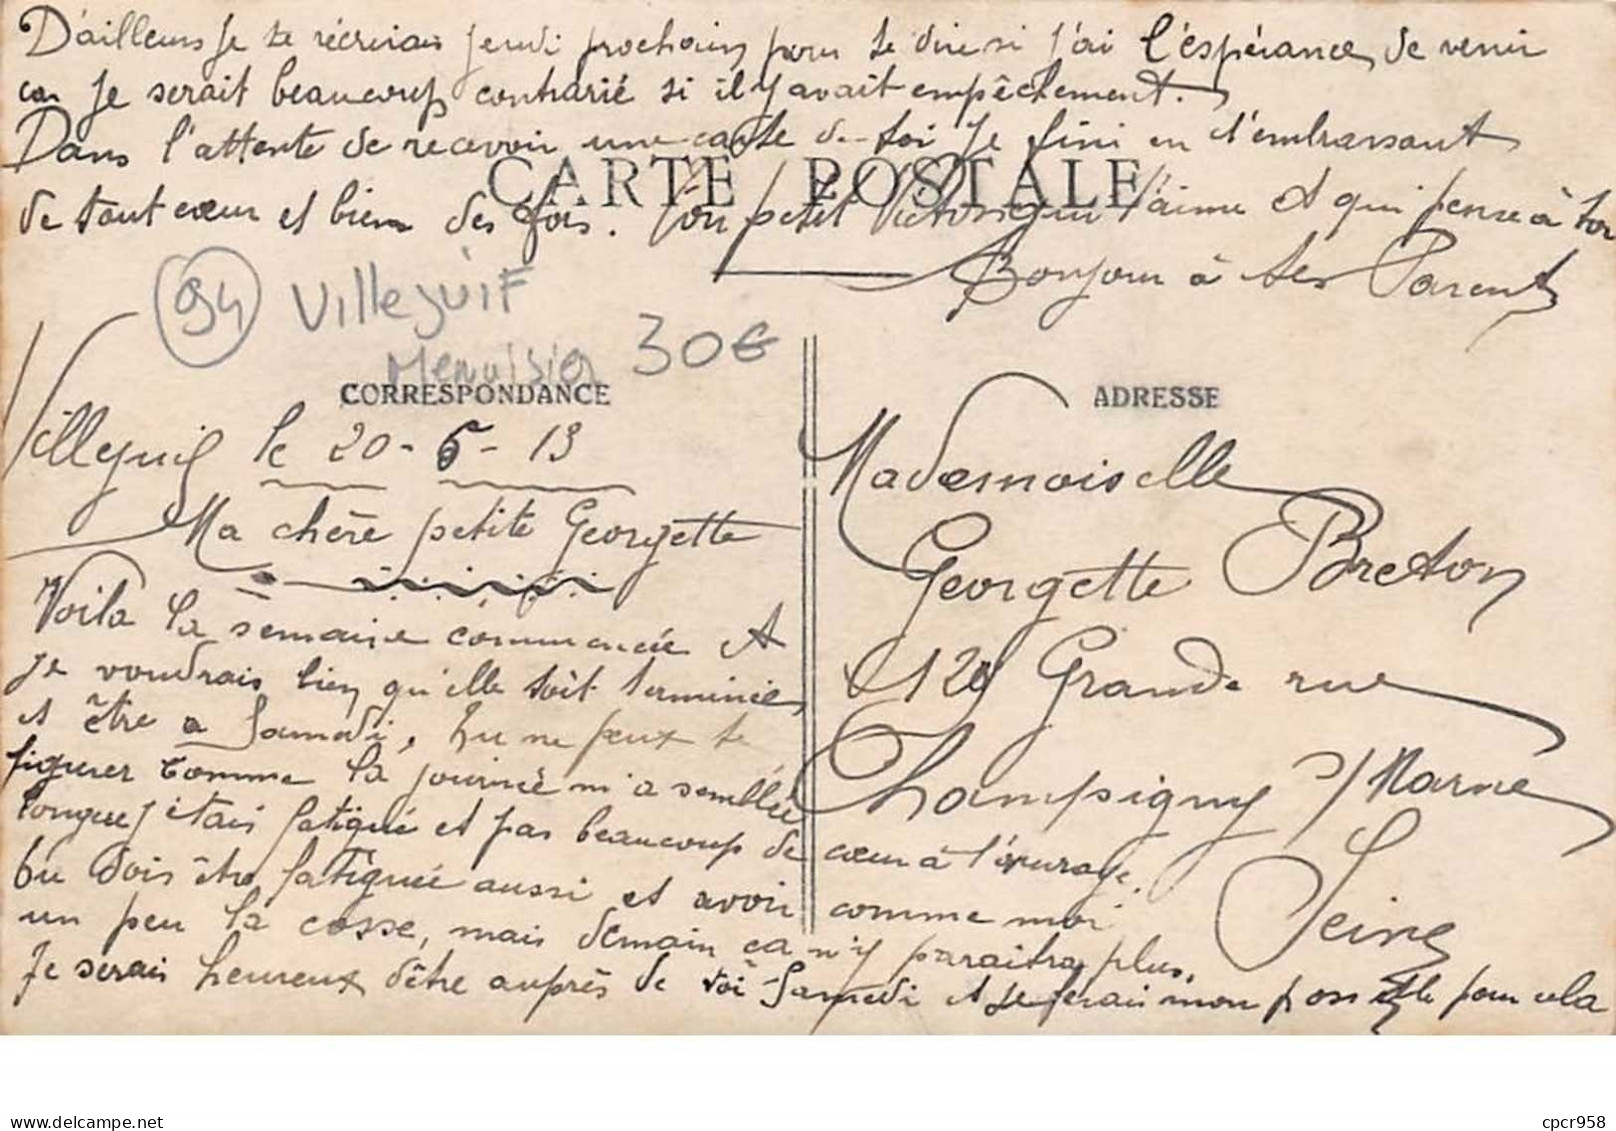 D'ailleurs je te récrirais jeudi prochain pour te dire si j'ai l'espérance de venir
car je serait beaucoup contrarié si il y avait empêchement.
Dans l'attente de recevoir une carte de toi je fini en t'embrassant
CARTE POSTALE
de tout cœur et bien des fois. Ton petit Victor qui t'aime et qui pense à toi
Bonjour à tes Parents
94 Villejuif
Menuisier 30€
CORRESPONDANCE
Villejuif le 20-5-13
Ma chère petite Georgette
Voila la semaine commencée et
je voudrais bien qu'elle soit terminée
et être a Samedi, tu ne peux te
figurer comme la journée m'a semblée
longue j'étais fatigué et pas beaucoup de cœur à l'ouvrage.
tu dois être fatiguée aussi et avoir comme moi
un peu la cosse, mais demain ça n'y paraitra plus.
Je serais heureux d'être auprès de toi Samedi et je ferais mon possible pour cela
ADRESSE
Mademoiselle
Georgette Breton
129 Grande rue
Champigny s/Marne
Seine
delcampe.net
cpcr958